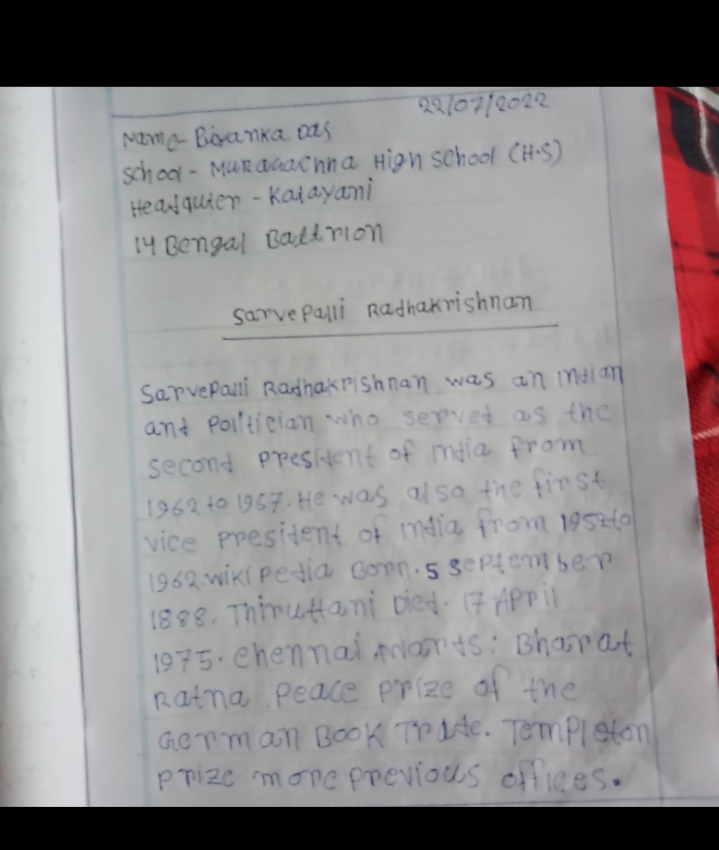 22/07/2022
Name - Biyanka Das
School - Muragachha High School (H.S)
Headquter - Kalayani
14 Bengal Battrion
Sarvepalli Radhakrishnan
Sarvepalli Radhakrishnan was an Indian
and Politician who served as the
second president of India from
1962 to 1967. He was also the first
vice president of India from 1952 to
1962. Wikipedia Born. 5 September
1888, Thiruttani Died. 17 April
1975. Chennai Awards: Bharat
Ratna Peace prize of the
German Book Trade. Templeton
prize more previous offices.